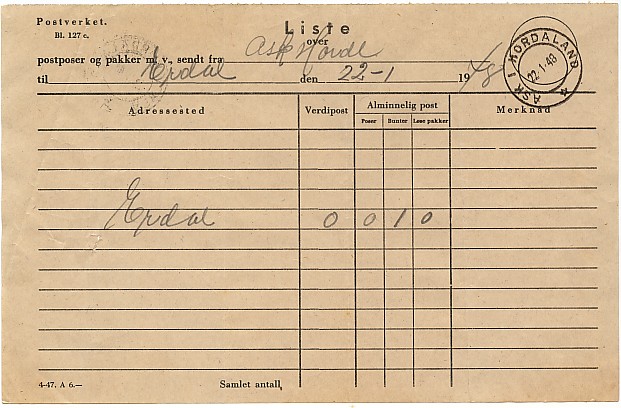 Postverket.
Bl. 127 c.
Liste
over
postposer og pakker m. v., sendt fra Ask i Horda
til Erdal den 22-1 19 48
ASK I HORDALAND
22.1.48
Adressested
Verdipost
Alminnelig post
Poser
Bunter
Løse pakker
Merknad
Erdal 0 0 1 0
4-47. A 6.—
Samlet antall